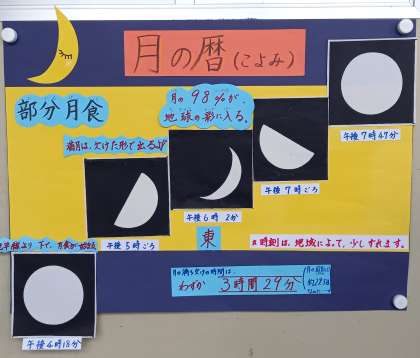 月の暦(こよみ)
部分月食
月の98%が、
地球の影に入る。
満月は、欠けた形で出るよ!
午後7時47分
午後7時ごろ
午後6時 2分
午後5時ごろ
東
※時刻は、地域によって、少しずれます。
地平線より下で、月食が始まる
月の満ち欠けの時間は、
わずか 3時間29分
午後4時18分